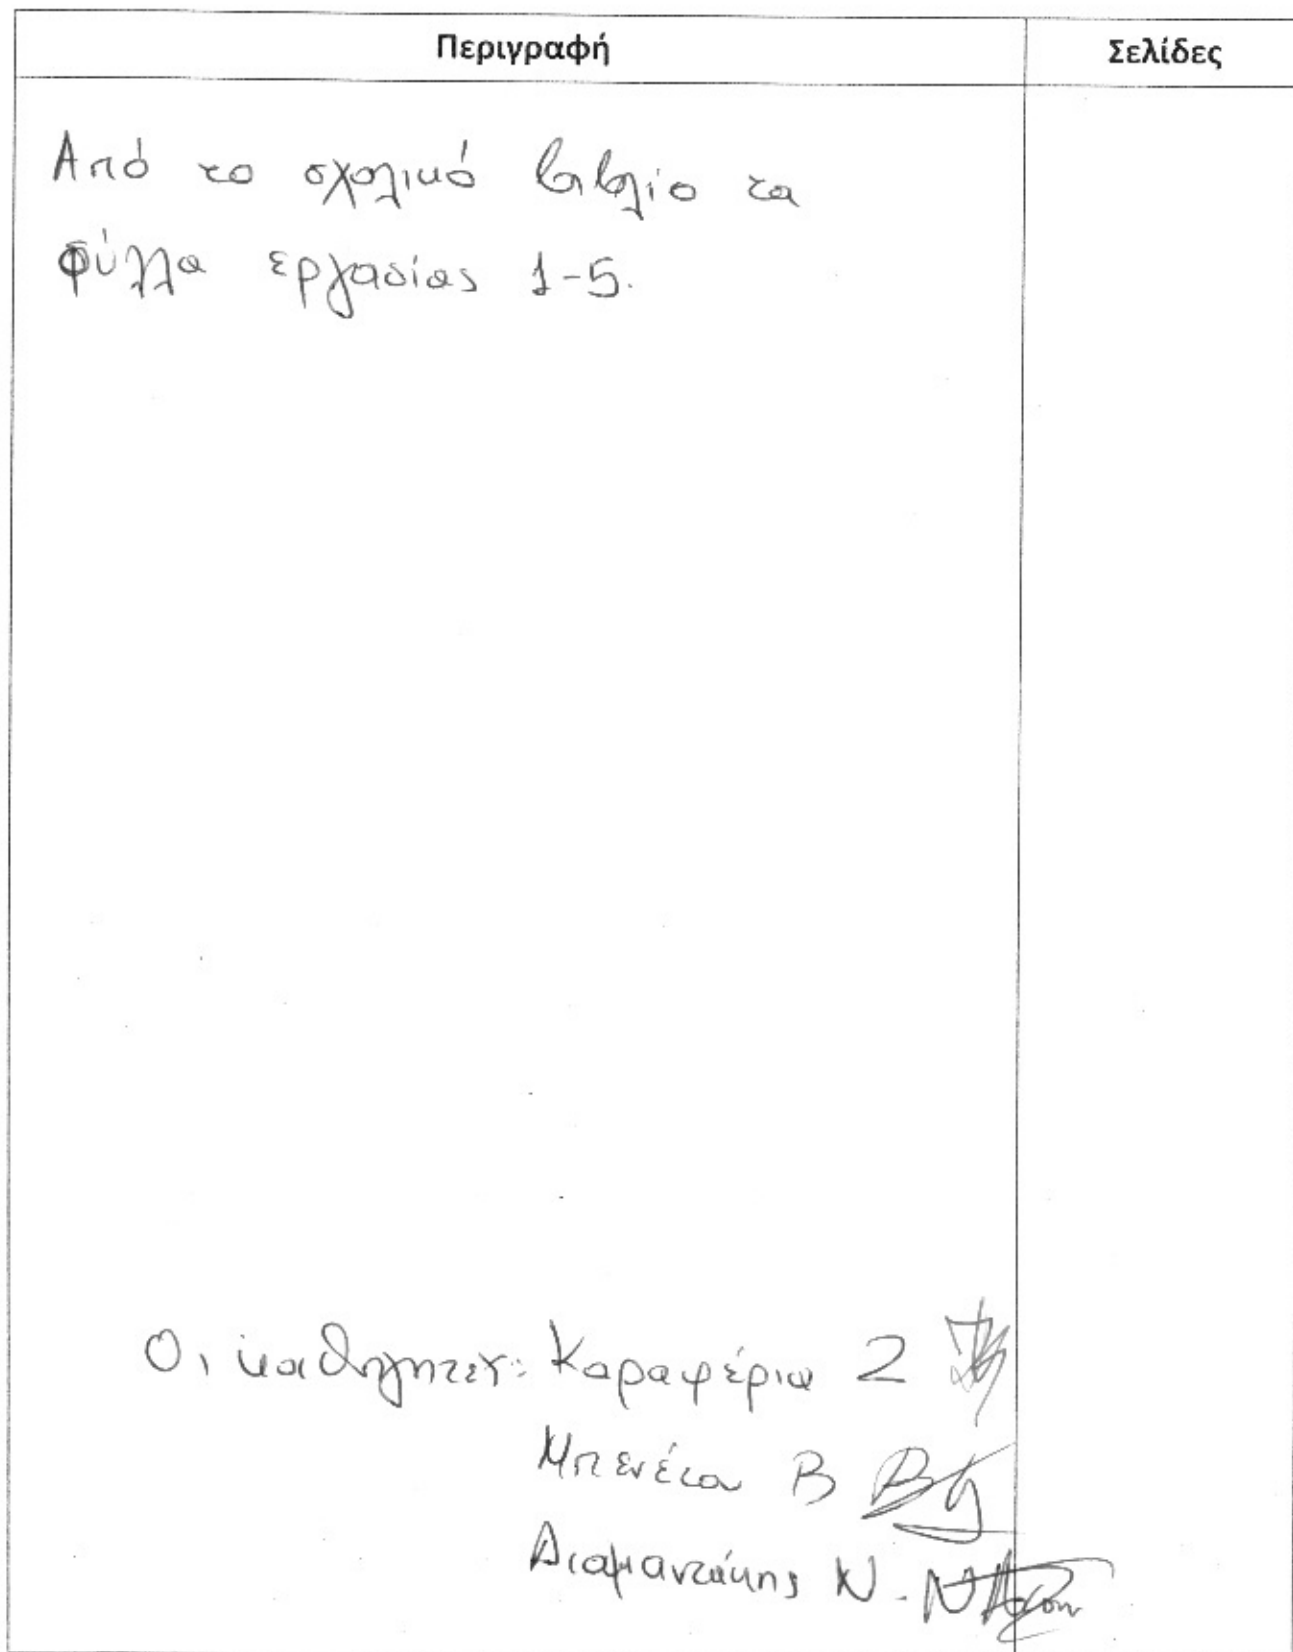 Περιγραφή Σελίδες
Από το σχολικό βιβλίο τα
φύλλα εργασίας 1-5.
Οι καθηγητες: Καραφέρια Ζ
Β
Διαμαντάκης Ν.